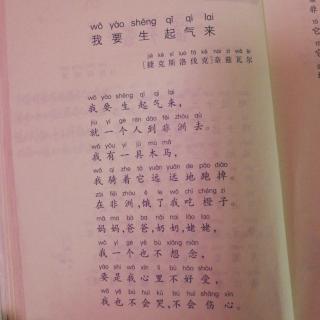 wǒ yào shēng qǐ qì lai
我要生起气来
jié kè sī luò fá kè nài zī wǎ ěr
[捷克斯洛伐克]奈兹瓦尔
wǒ yào shēng qǐ qì lai
我要生起气来,
jiù yí gè rén dào fēi zhōu qù
就一个人到非洲去。
wǒ yǒu yí jù mù mǎ
我有一具木马,
wǒ qí zhe tā yuǎn yuǎn de pǎo diào
我骑着它远远地跑掉。
zài fēi zhōu è le wǒ chī chéng zi
在非洲,饿了我吃橙子。
mā ma bà ba nǎi nai lǎo lao
妈妈,爸爸,奶奶,姥姥,
wǒ yí gè yě bù xiǎng niàn
我一个也不想念,
yào shi wǒ xīn lǐ bù hǎo shòu
要是我心里不好受,
wǒ yě bú huì kū bú huì shāng xīn
我也不会哭,不会伤心。